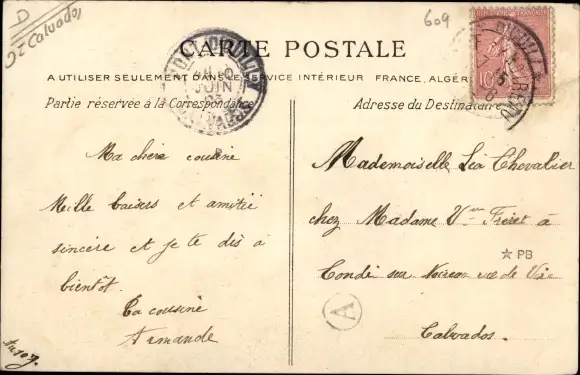 D
Calvados
609
CARTE POSTALE
A UTILISER SEULEMENT DANS LE SERVICE INTÉRIEUR FRANCE, ALGÉR
Partie réservée à la Correspondance
Adresse du Destinataire
JUIN
10
Ma chère cousine
Mille baisers et amitié
sincère et je te dis à
bientôt.
Ta cousine
Armande
Mademoiselle Léa Chevalier
chez Madame Vve Fréret à
Condé sur Noireau rue de Vire
Calvados.
PB
A